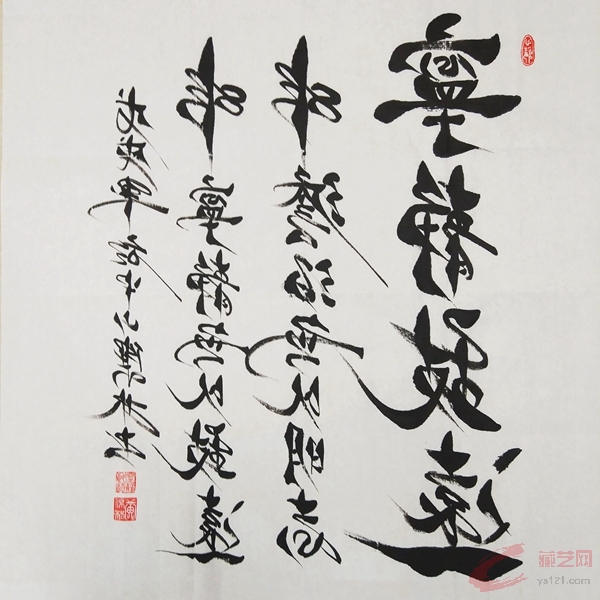 寧靜致遠
非澹泊無以明志
非寧靜無以致遠
戊戌年
藏艺网
ya121.com